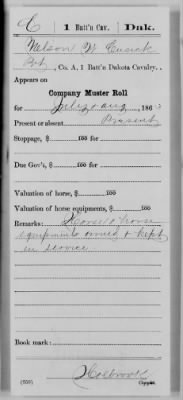 C | 1 Batt'n Cav. | Dak.
Nelson W Cusick
Pvt, Co. A, 1 Batt'n Dakota Cavalry.
Appears on
Company Muster Roll
for July & Aug, 186
Present or absent Present
Stoppage, $ 100 for
Due Gov't, $ 100 for
Valuation of horse, $ 100
Valuation of horse equipments, $ 100
Remarks: Horse & horse
equipments owned & kept
in service
Book mark:
Holbrook
(859) Copyist.